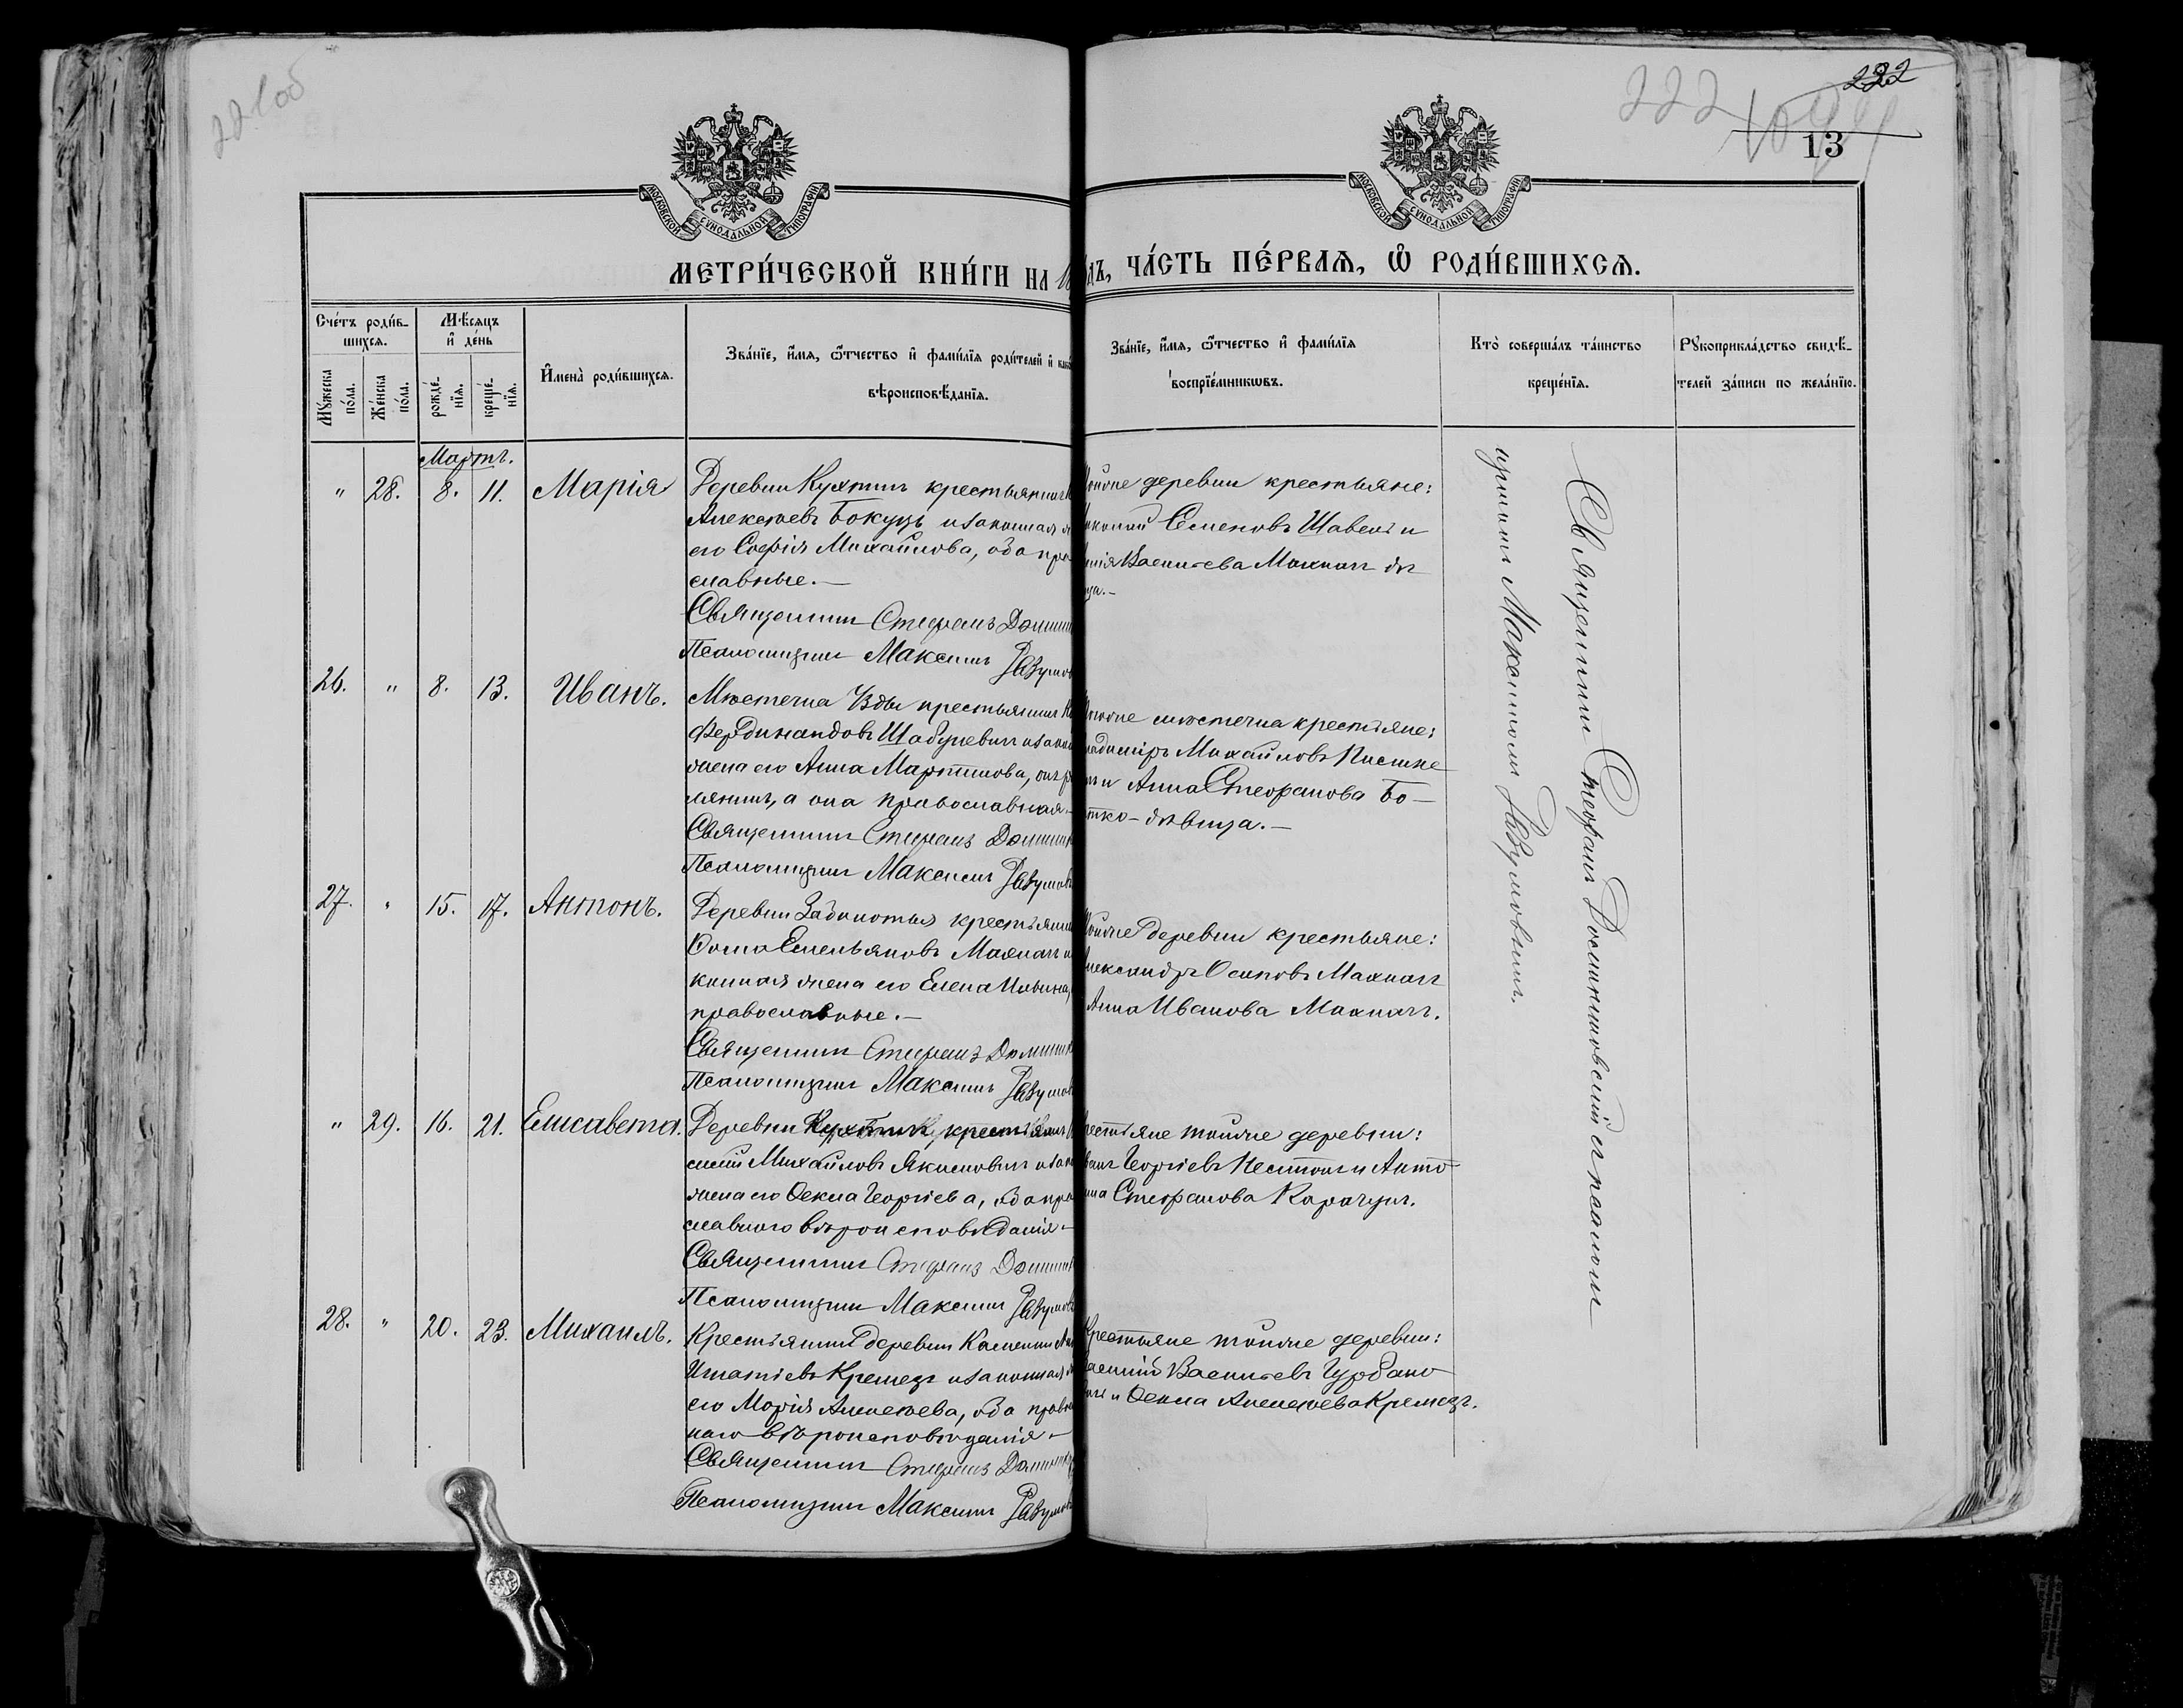 221об
222
222
13
МОСКОВСКОЙ СѴНОДАЛЬНОЙ ТИПОГРАФІИ
МОСКОВСКОЙ СѴНОДАЛЬНОЙ ТИПОГРАФІИ
МЕТРИ́ЧЕСКОЙ КНИ́ГИ НА 18
ДЪ, ЧА́СТЬ ПЕ́РВАѦ, Ѽ РОДИ́ВШИХСѦ.
Сче́тъ роди́в-
шихсѧ.
Мꙋ́жеска по́ла.
Же́нска по́ла.
Мѣ́сѧцъ
и҆ де́нь
рожде́-
нїѧ.
креще́-
нїѧ.
И҆мена̀ роди́вшихсѧ.
Зва́нїе, и҆́мѧ, ѻ҆́тчество и҆ фами́лїѧ роди́телей и҆ како
вѣроисповѣ́данїѧ.
Зва́нїе, и҆́мѧ, ѻ҆́тчество и҆ фами́лїѧ
воспрїе́мникѡвъ.
Кто̀ соверша́лъ та́инство
креще́нїѧ.
Рꙋкоприкла́дство свидѣ́-
телей за́писи по жела́нїю.
Мартъ.
" 28. 8. 11. Марія
Деревни Кухтичъ крестьянинъ
Алексѣевъ Бокуць и законная
его Софія Михайлова, оба пра
славные.—
Священникъ Стефанъ Домини
Псаломщикъ Максимъ Разумов
тойже деревни крестьяне:
Семеновъ Шавель и
Васильева Махнач дѣ
ца.—
26. " 8. 13. Иванъ.
Мѣстечка Узды крестьянинъ
Фердинандовъ Шабуневич и закон
жена его Анна Мартинова, онъ р
лянинъ, а она православная.—
Священникъ Стефанъ Доминик
Псаломщикъ Максимъ Разумов
тогоже мѣстечка крестьяне:
ладимiръ Михайловъ
и Анна Стефанова Бо-
тко-дѣвица.—
27. " 15. 17. Антонъ.
Деревни Заболотья крестьянин
Ѳома Емельяновъ Махнач и
конная жена его Елена Ильина,
православные.—
Священникъ Стефанъ Доминик
Псаломщикъ Максимъ Разумов
тойже деревни крестьяне:
Александръ Осиповъ Махнач
Анна Иванова Махнач.
" 29. 16. 21. Елисавета.
Деревни Кухтичъ, крестьянинъ
Михайловъ Якимович и закон
жена его Ѳекла Георгіева, оба пра
славнаго вѣроисповѣданія—
Священникъ Стефанъ Доминик
Псаломщикъ Максимъ Разумов
крестьяне тойже деревни:
Георгіевъ и Анто
нина Стефанова Карачун.
28. " 20. 23. Михаилъ.
Крестьянинъ деревни Каменки
Игнатіевъ Кремез и законная
его Марія Алексѣева, оба правосл
наго вѣроисповѣданія—
Священникъ Стефанъ Доминик
Псаломщикъ Максимъ Разумов
Крестьяне тойже деревни:
Василій Васильевъ Гурбано
и Ѳекла Алексѣева Кремез.
Священникъ Стефанъ Доминиковскій с псалом
щикомъ Максимомъ Разумовичъ.